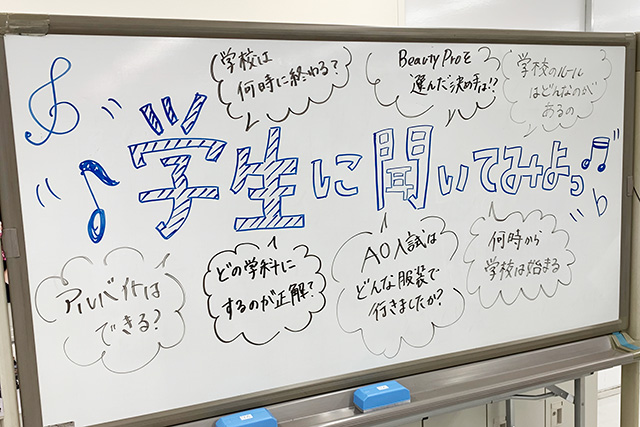 学校は
何時に終わる?
Beauty Proを
選んだ決め手は!?
学校のルール
はどんなのが
あるの
学生に聞いてみよっ
アルバイトは
できる?
どの学科に
するのが正解?
AO入試は
どんな服装で
行きましたか?
何時から
学校は始まる